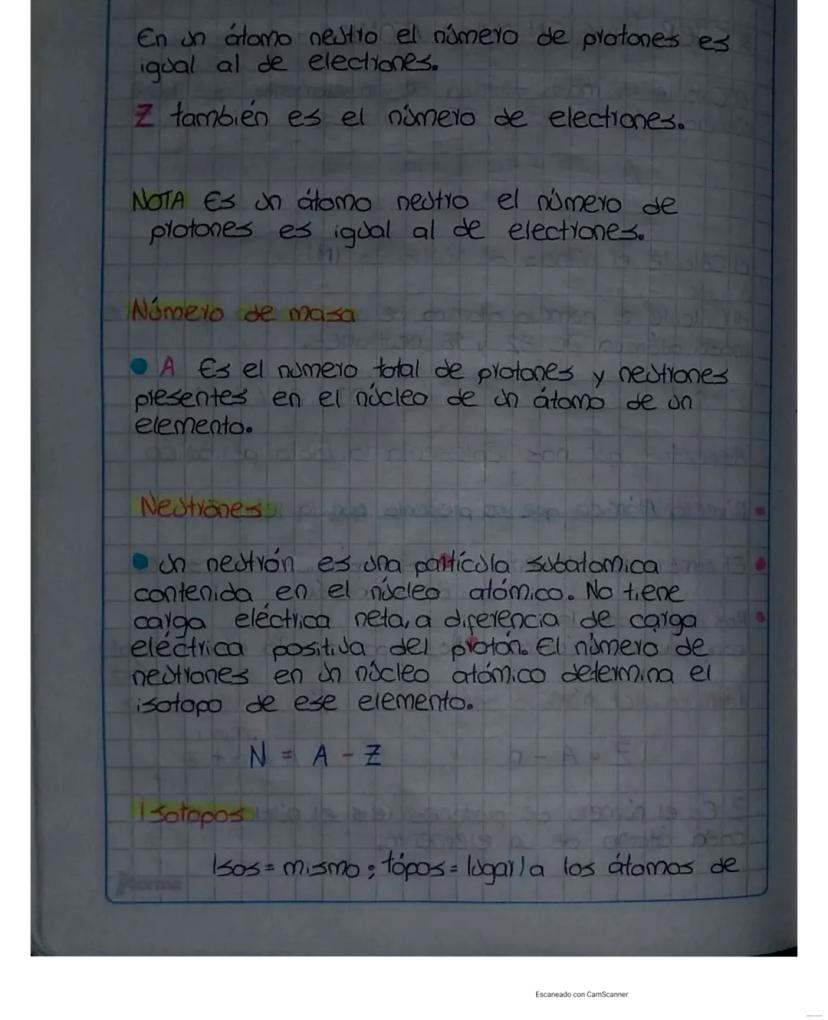 En un átomo neutro el número de protones es
igual al de electrones.
Z también es el número de electrones.
NOTA Es un átomo neutro el número de
protones es igual al de electrones.
Número de masa
A Es el numero total de protones y neutrones
presentes en el núcleo de un átomo de un
elemento.
Neutrones
Un neutrón es una partícula subatomica
contenida en el núcleo atómico. No tiene
carga eléctrica neta, a diferencia de carga
eléctrica positiva del protón. El número de
neutrones en un núcleo atómico determina el
isotopo de ese elemento.
N = A - Z
Isotopos
Isos = mismo; tópos = lugar) a los átomos de
Norma
Escaneado con CamScanner